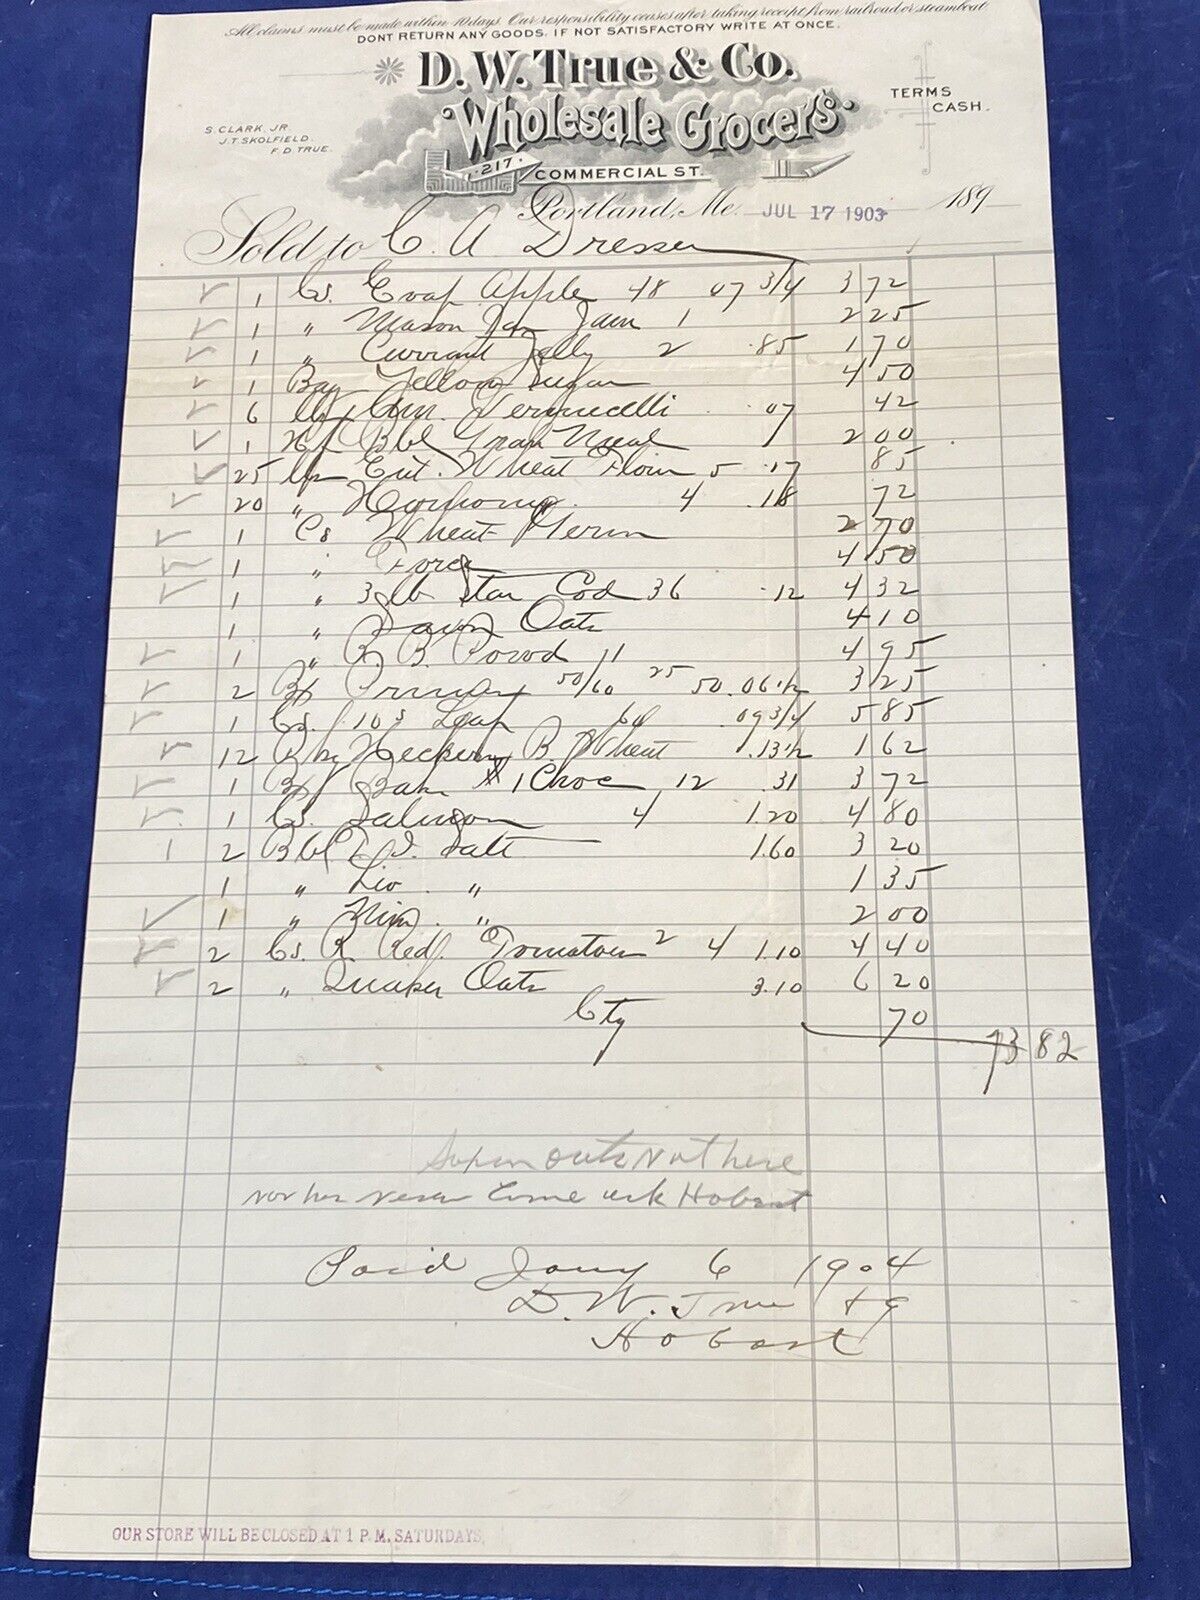 All claims must be made within 10 days. Our responsibility ceases after taking receipt from railroad or steamboat.
DONT RETURN ANY GOODS. IF NOT SATISFACTORY WRITE AT ONCE.
D.W. True & Co.
Wholesale Grocers
TERMS CASH.
S CLARK, JR.
J.T. SKOLFIELD.
F.D. TRUE.
217 COMMERCIAL ST.
Portland, Me. JUL 17 1903 189
Sold to C. A. Dresser
1 Cs. Evap Apple 48 07 3/4 3 72
1 " Mason Jar Jam 1 2 25
1 " Currant Jelly 2 .85 1 70
1 Bag Yellow Sugar 4 50
6 Vermicelli .07 42
1 Hf Bbl Gran Meal 2 00
25 Ent. Wheat Flour 5 .17 85
20 " 4 .18 72
1 Cs Wheat Germ 2 70
1 " Force 4 50
1 " 3 lb Star Cod 36 .12 4 32
1 " Oats 4 10
1 " R B. Powd 11 4 95
2 Bx 50/60 25 50 .06 1/2 3 25
1 Cs. 10s 60 .09 3/4 5 85
12 B. Wheat .13 1/2 1 62
1 Bx Bak #1 Choc 12 .31 3 72
1 Cs. Salmon 4 1.20 4 80
2 Bbl T.I. Salt 1.60 3 20
1 " Liv. " 1 35
1 " " 2 00
2 Cs. R. Red. Tomatoes 2 4 1.10 4 40
2 " Quaker Oats 3.10 6 20
Ctg 70
73 82
Oats Not here
nor has never Come Hobart
Paid Jany 6 1904
D. W. True & Co
Hobart
OUR STORE WILL BE CLOSED AT 1 P.M. SATURDAYS.